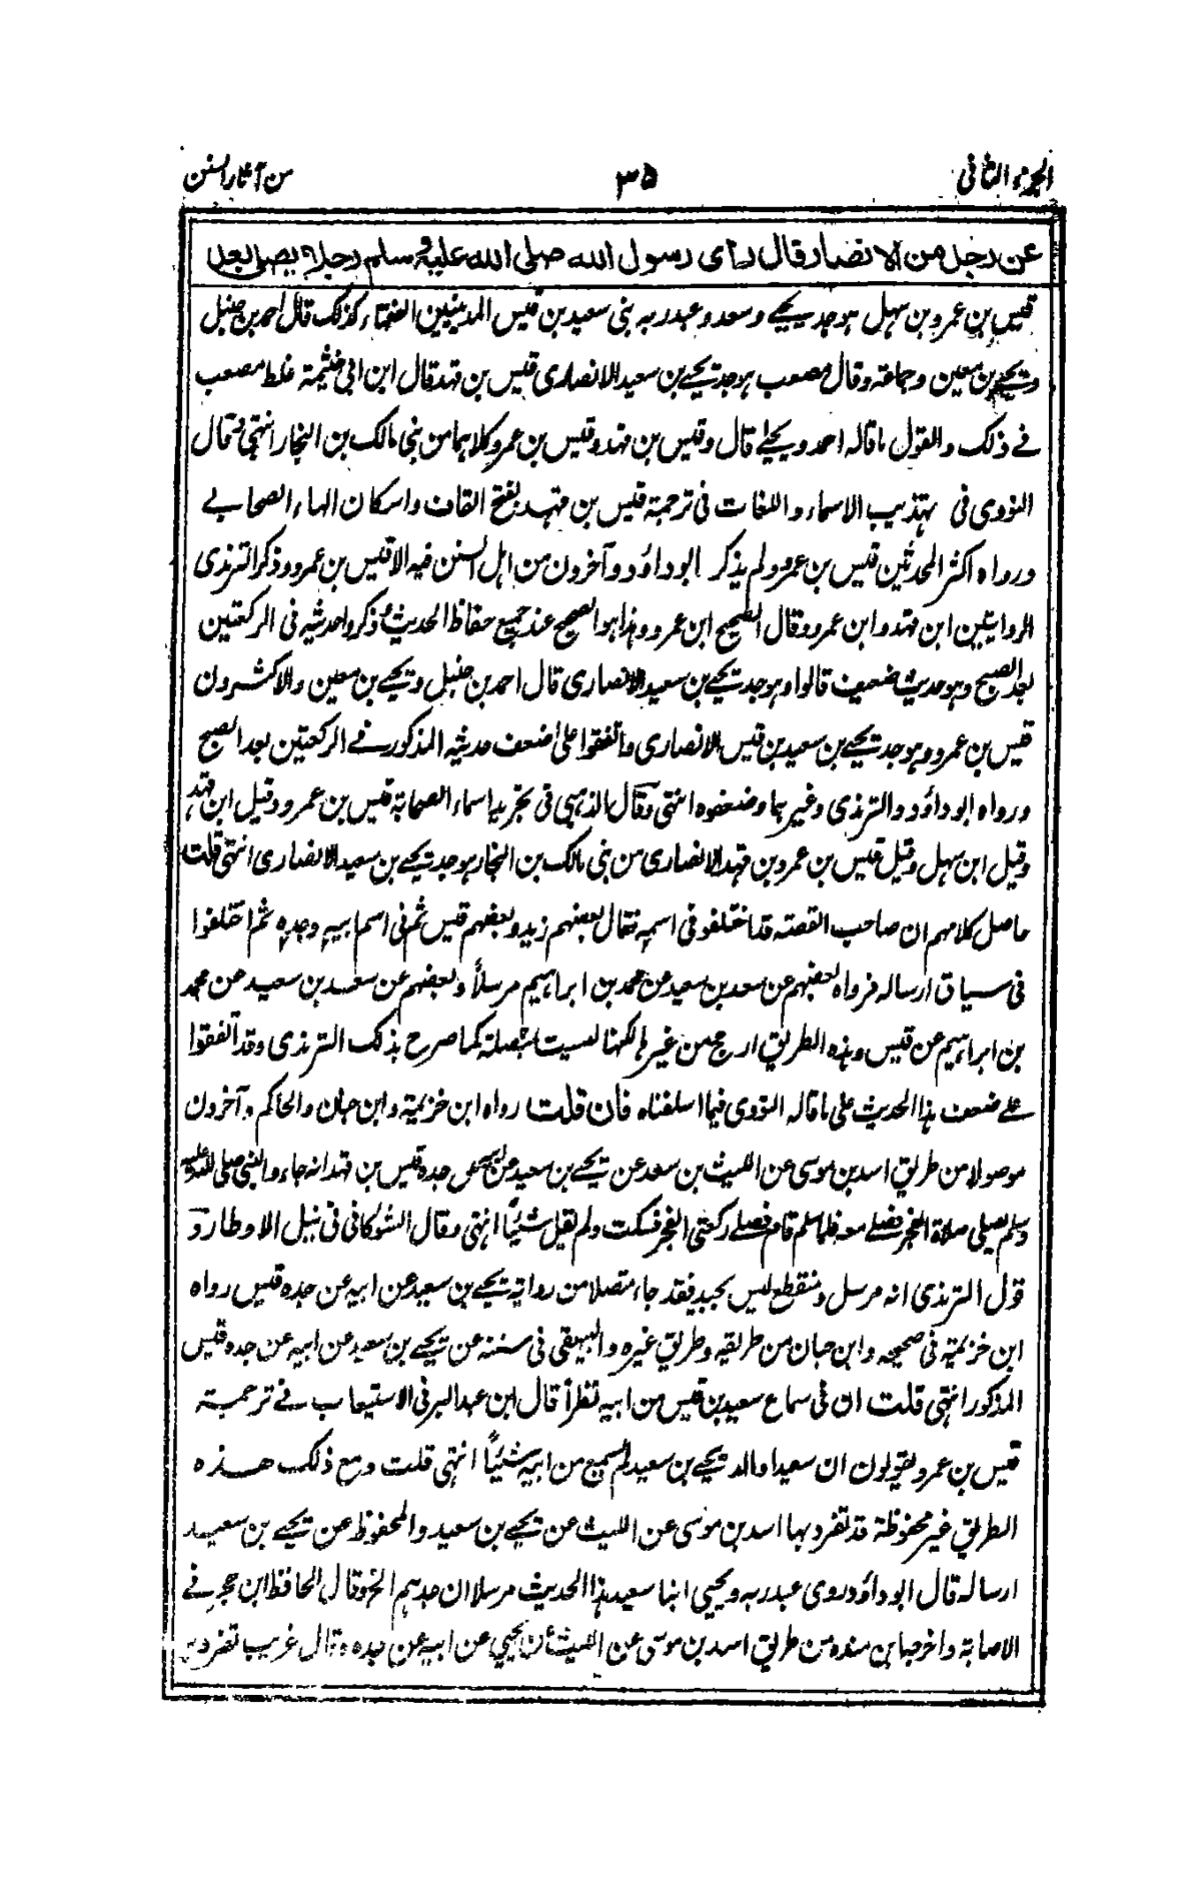 الجزء الثانى ٣٥ من آثار السنن
عن رجل من الانصار قال رأى رسول الله صلى الله عليه وسلم رجلا يصلى بعد
قيس بن عمرو بن سهل هو جد يحيى وسعد وعبد ربه بنى سعيد بن قيس المدينيين الفقهاء كذلك قال احمد بن حنبل
ويحيى بن معين وجماعة وقال مصعب هو جد يحيى بن سعيد الانصارى قيس بن قهد قال ابن ابى خثيمة غلط مصعب
فى ذلك والقول ما قاله احمد ويحيى قال وقيس بن قهد وقيس بن عمرو كلاهما من بنى مالك بن النجار انتهى وقال
النووى فى تهذيب الاسماء واللغات فى ترجمة قيس بن قهد بفتح القاف واسكان الهاء الصحابى
ورواه اكثر المحدثين قيس بن عمرو ولم يذكر ابو داؤد وآخرون من اهل السنن فيه الا قيس بن عمرو وذكر الترمذى
الروايتين ابن قهد وابن عمرو وقال الصحيح ابن عمرو وهذا هو الصحيح عند جميع حفاظ الحديث ذكروا حديثه فى الركعتين
بعد الصبح وهو حديث ضعيف قالوا وهو جد يحيى بن سعيد الانصارى قال احمد بن حنبل ويحيى بن معين والاكثرون
قيس بن عمرو وهو جد يحيى بن سعيد بن قيس الانصارى واتفقوا على ضعف حديثه المذكور فى الركعتين بعد الصبح
ورواه ابو داؤد والترمذى وغيرهما وضعفوه انتهى وقال الذهبى فى تجريد اسماء الصحابة قيس بن عمرو وقيل ابن قهد
وقيل ابن سهل وقيل قيس بن عمرو بن قهد الانصارى من بنى مالك بن النجار هو جد يحيى بن سعيد الانصارى انتهى قلت
حاصل كلامهم ان صاحب القصة قد اختلفو فى اسمه فقال بعضهم زيد وبعضهم قيس ثم فى اسم ابيه وجده ثم اختلفوا
فى سياق ارساله فرواه بعضهم عن سعد بن سعيد عن محمد بن ابراهيم مرسلاً وبعضهم عن سعد بن سعيد عن محمد
بن ابراهيم عن قيس وهذه الطريق ارجح من غيرها لكنها ليست بمتصلة كما صرح بذلك الترمذى وقد اتفقوا
على ضعف هذا الحديث على ما قاله النووى فيما اسلفناه فان قلت رواه ابن خزيمة وابن حبان والحاكم وآخرون
موصولا من طريق اسد بن موسى عن الليث بن سعد عن يحيى بن سعيد عن ابيه عن جده قيس بن قهد انه جاء والنبى صلى الله عليه
وسلم يصلى صلاة الفجر فصلى معه فلما سلم قام فصلى ركعتى الفجر فسكت ولم يقل شيئاً انتهى وقال الشوكانى فى نيل الاوطار و
قول الترمذى انه مرسل ومنقطع ليس بجيد فقد جاء متصلا من رواية يحيى بن سعيد عن ابيه عن جده قيس رواه
ابن خزيمة فى صحيحه وابن حبان من طريقه وطريق غيره والبيهقى فى سننه عن يحيى بن سعيد عن ابيه عن جده قيس
المذكور انتهى قلت ان فى سماع سعيد بن قيس من ابيه نظراً قال ابن عبد البر فى الاستيعاب فى ترجمة
قيس بن عمرو يقولون ان سعيدا والد يحيى بن سعيد لم يسمع من ابيه شيئاً انتهى قلت ومع ذلك هذه
الطريق غير محفوظة قد تفرد بها اسد بن موسى عن الليث عن يحيى بن سعيد والمحفوظ عن يحيى بن سعيد
ارساله قال ابو داؤد روى عبد ربه ويحيى ابنا سعيد هذا الحديث مرسلا ان جدهم الخ وقال الحافظ ابن حجر فى
الاصابة واخرجها بن منده من طريق اسد بن موسى عن الليث عن يحيى عن ابيه عن جده وقال غريب تفرد به